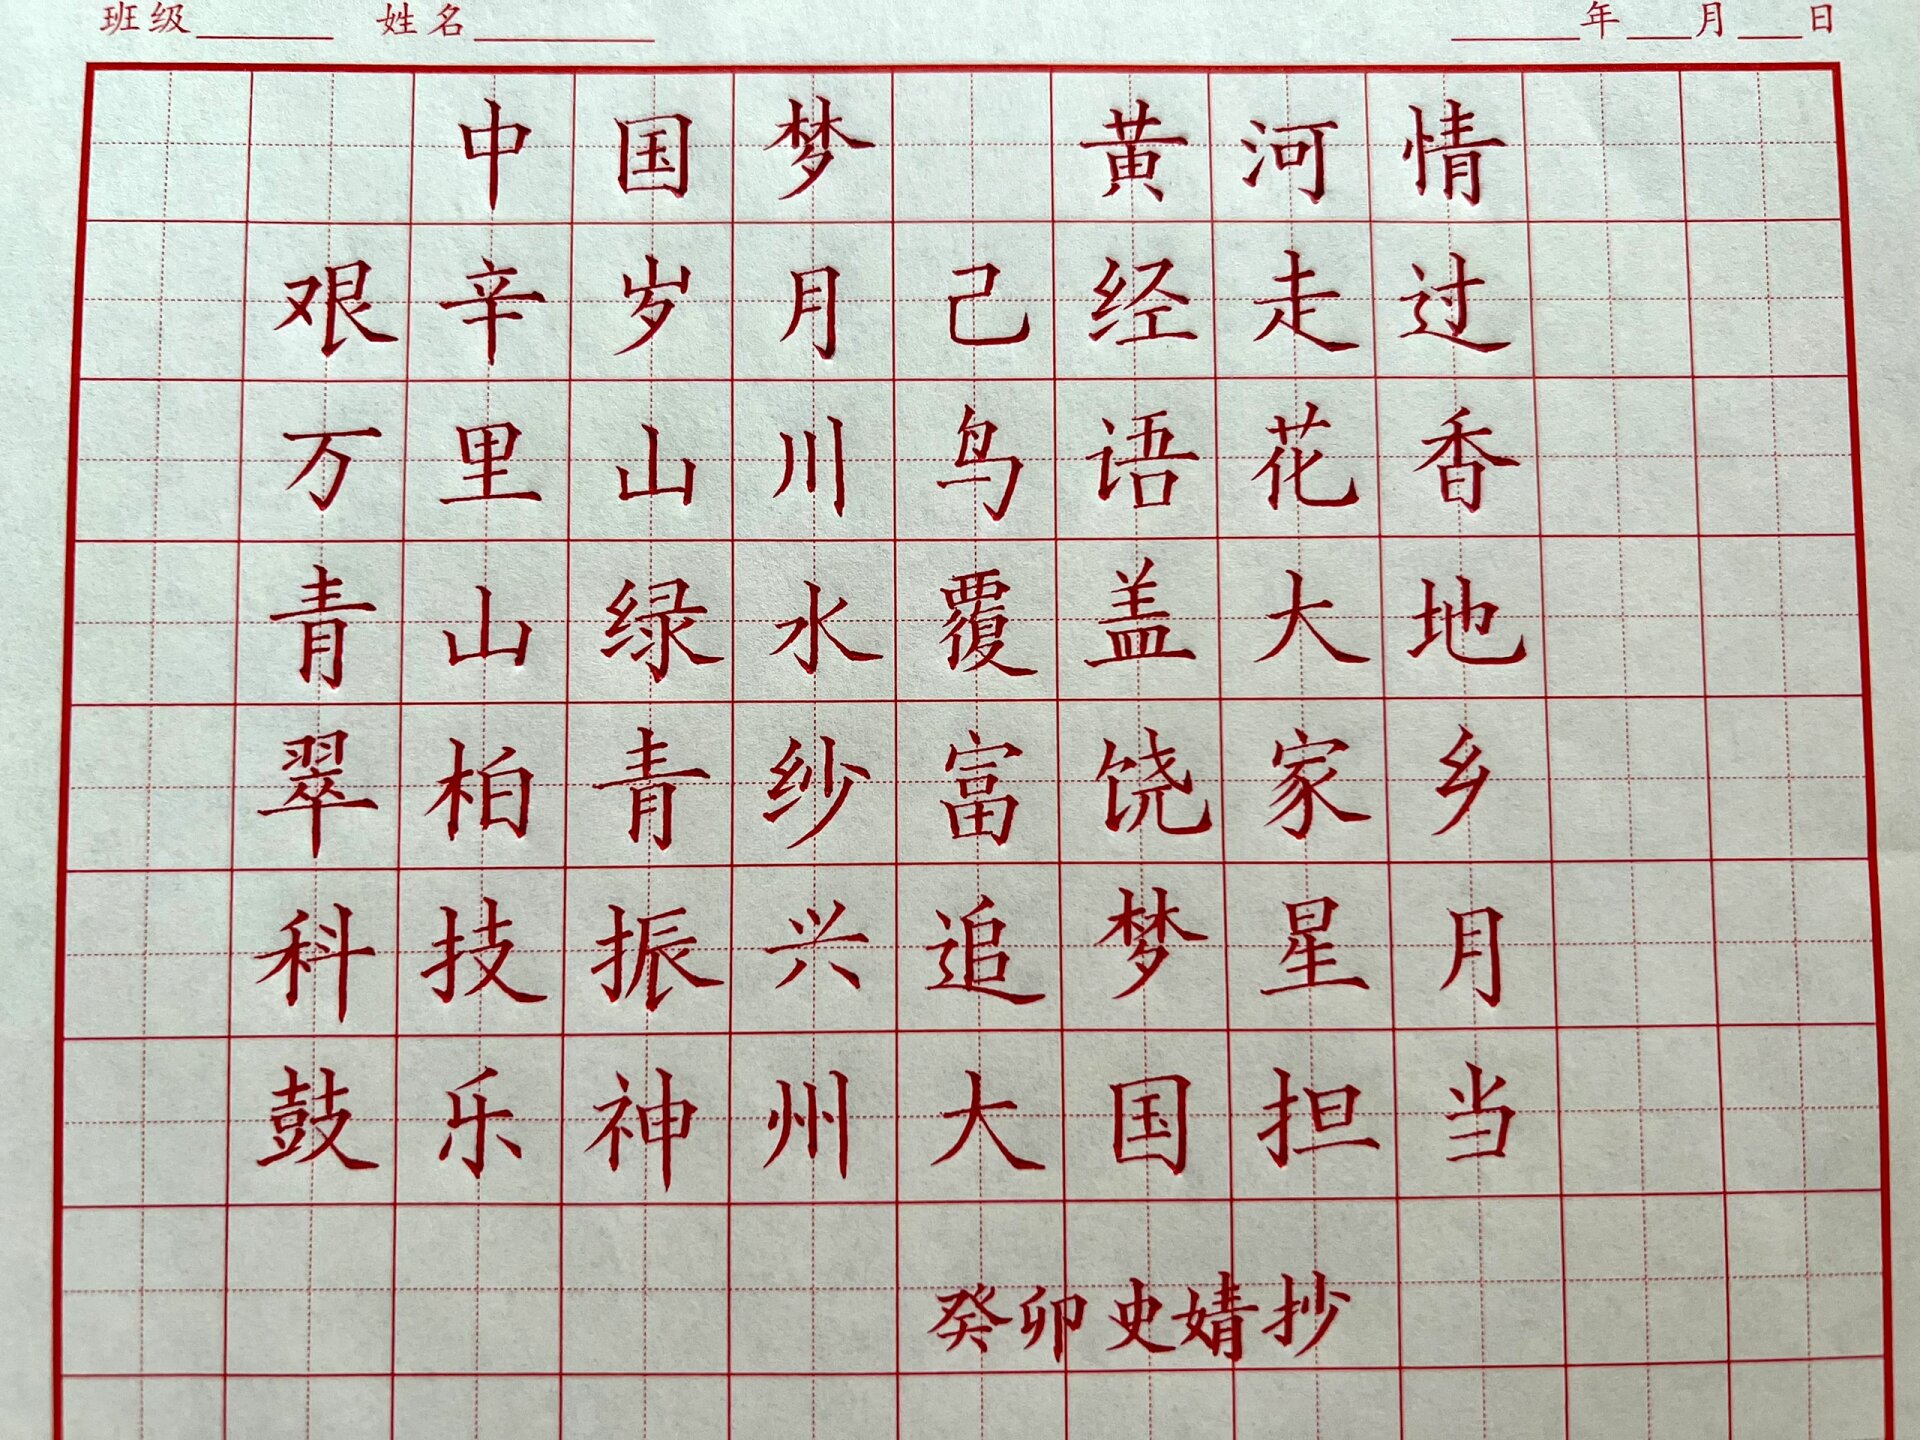 班级 姓名 年 月 日
中国梦 黄河情
艰辛岁月己经走过
万里山川鸟语花香
青山绿水覆盖大地
翠柏青纱富饶家乡
科技振兴追梦星月
鼓乐神州大国担当
癸卯史婧抄